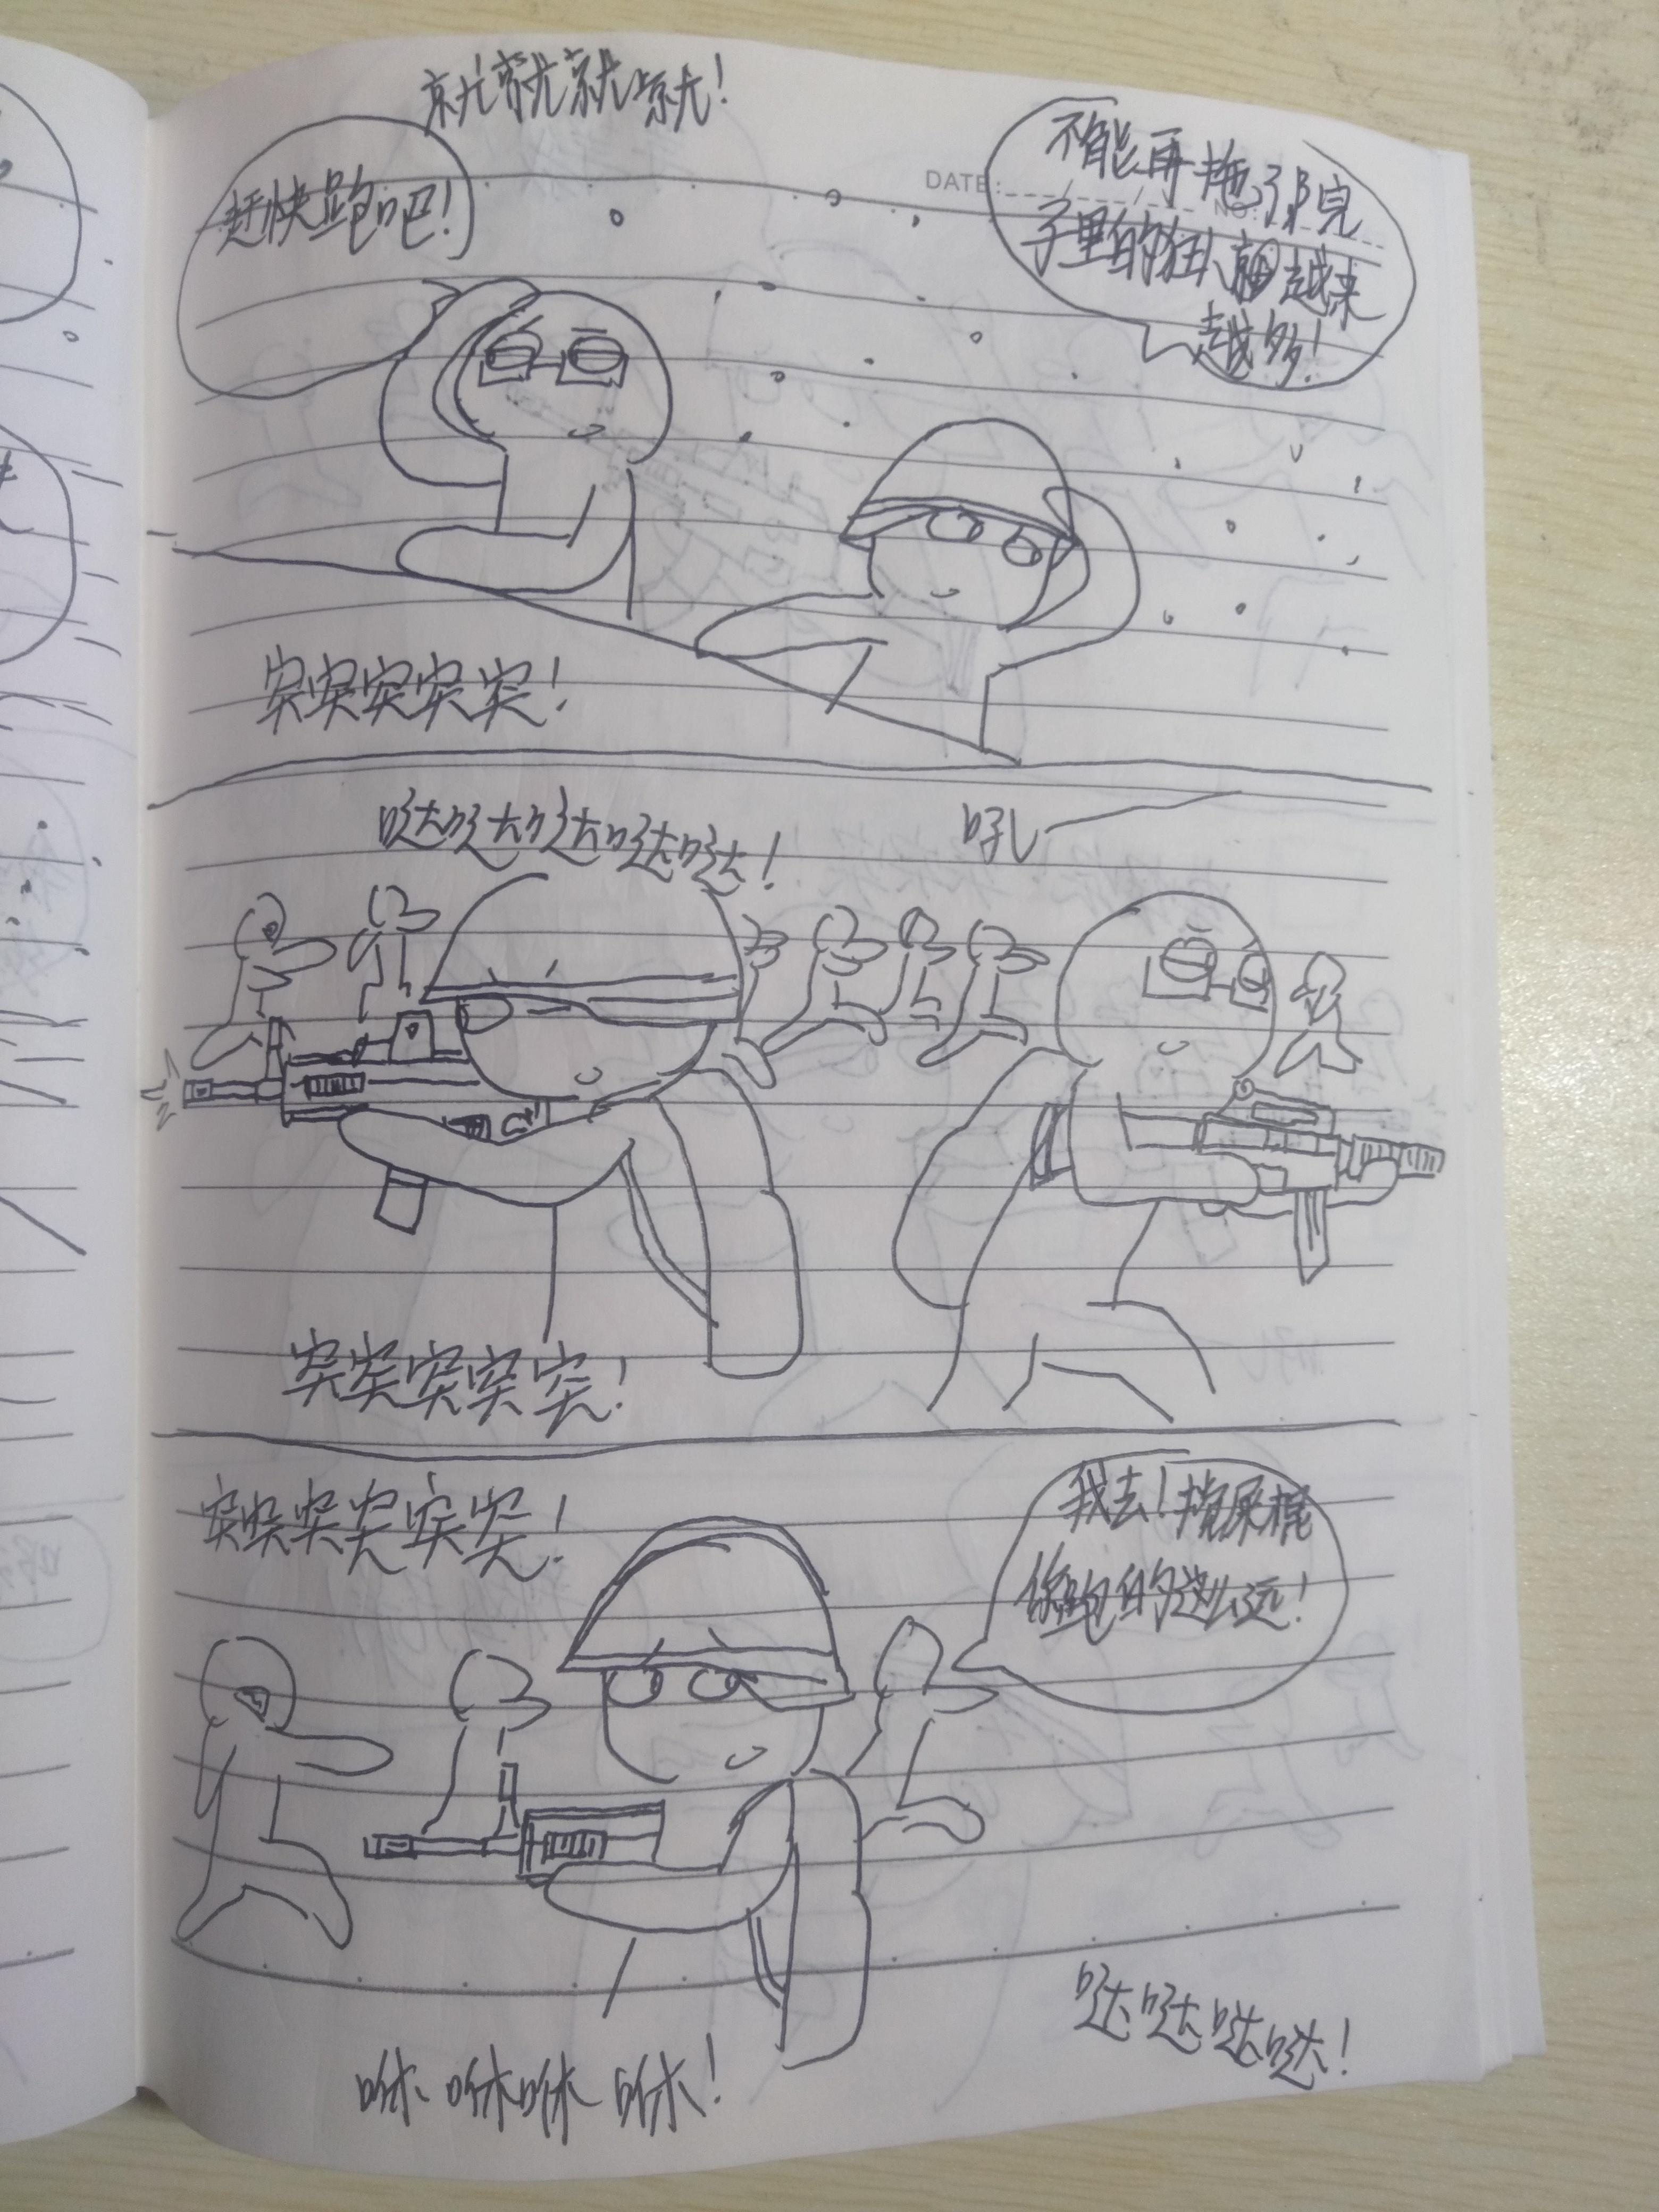 就就就就!
赶快跑吧!
DATE:
NO:
不能再拖了院
子里的狂
越来
越多!
突突突突突!
哒哒哒哒哒!
吼
突突突突突!
突突突突突突!
我去!
你跑的这么远!
哒哒哒哒!
咻咻咻咻!